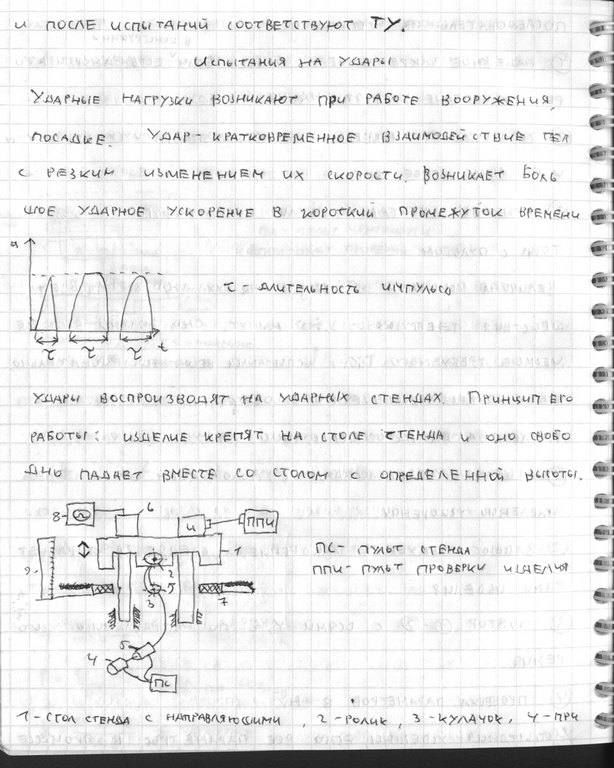 и после испытаний соответствуют ТУ.
Испытания на удары
Ударные нагрузки возникают при работе вооружения,
посадке. Удар - кратковременное взаимодействие тел
с резким изменением их скорости. Возникает боль
шое ударное ускорение в короткий промежуток времени
a
τ - длительность импульса
τ τ τ t
Удары воспроизводят на ударных стендах. Принцип его
работы: изделие крепят на столе стенда и оно свобо
дно падает вместе со столом с определенной высоты.
8 6 И ППИ
1
9 2
ПС - пульт стенда
ППИ - пульт проверки изделия
3 5 7
5
4
ПС
1 - стол стенда с направляющими, 2 - ролик, 3 - кулачок, 4 - при